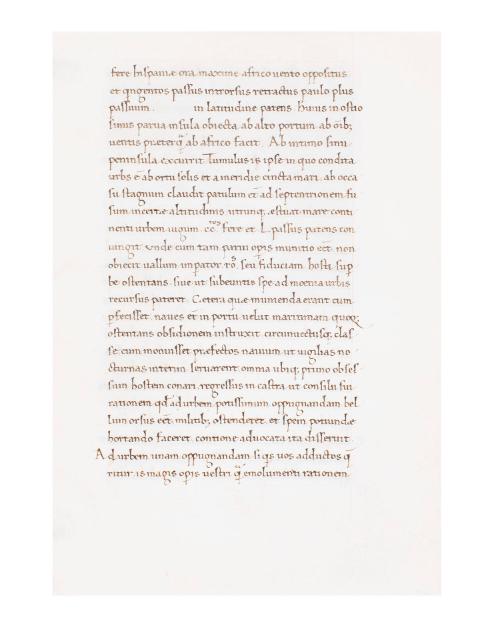 fere hispaniæ ora maxime africo uento oppositus
et qngentos passus introrsus retractus paulo plus
passuum in latitudine patens. Huius in ostio
simus parua insula obiecta ab alto portum ab oib;
uentis præterq̃ ab africo facit. Ab intimo sinu
peninsula excurrit. Tumulus is ipse in quo condita
urbs ẽ ab ortu solis et a meridie cincta mari. ab occa
su stagnum claudit patulum et ad septentrionem fu
sum incertæ altitudinis utrunq; æstuat mare. conti
nenti urbem iugum fere et L. passus patens con
iungit. unde cum tam parui opis munitio eẽt non
obiecit uallum impator seu fiduciam hosti sup
be ostentans. siue ut subeuntis spe ad mœnia urbis
recursus pateret. Cetera quæ munienda erant cum
pfecisset. naues et in portu uelut maritimam quoq;
ostentans obsidionem instruxit circumuectusq; clas
se cum monuisset præfectos nauium ut uigilias no
cturnas intenti seruarent omnia ubiq; primo obses
sum hostem conari. regressus in castra ut consilii sui
rationem qd ad urbem potissimum oppugnandam bel
lum orsus eẽt militib; ostenderet. et spem potiundæ
hortando faceret. contione aduocata ita disseruit.
Ad urbem unam oppugnandam si qs uos adductos
ritur. is magis opis uestri q̃ emolumenti rationem